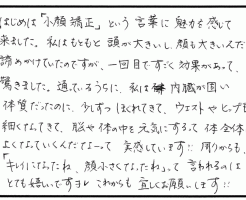 はじめは「小顔矯正」という言葉に魅力を感じて
来ました。私はもともと頭が大きいし、顔も大きいんだと
諦めかけていたのですが、一回目ですぐ効果があって、
驚きました。通っているうちに、私は 内臓が固い
体質だったのに、少しずつほぐれてきて、ウエストやヒップも
細くなってきて、脳や体の中を元気にするって体全体
よくなっていくんだなって 実感しています!! 周りからも、
「キレイになったね、顔小さくなったね」って言われるのは
とても嬉しいですヨ これからも宜しくお願いします!!